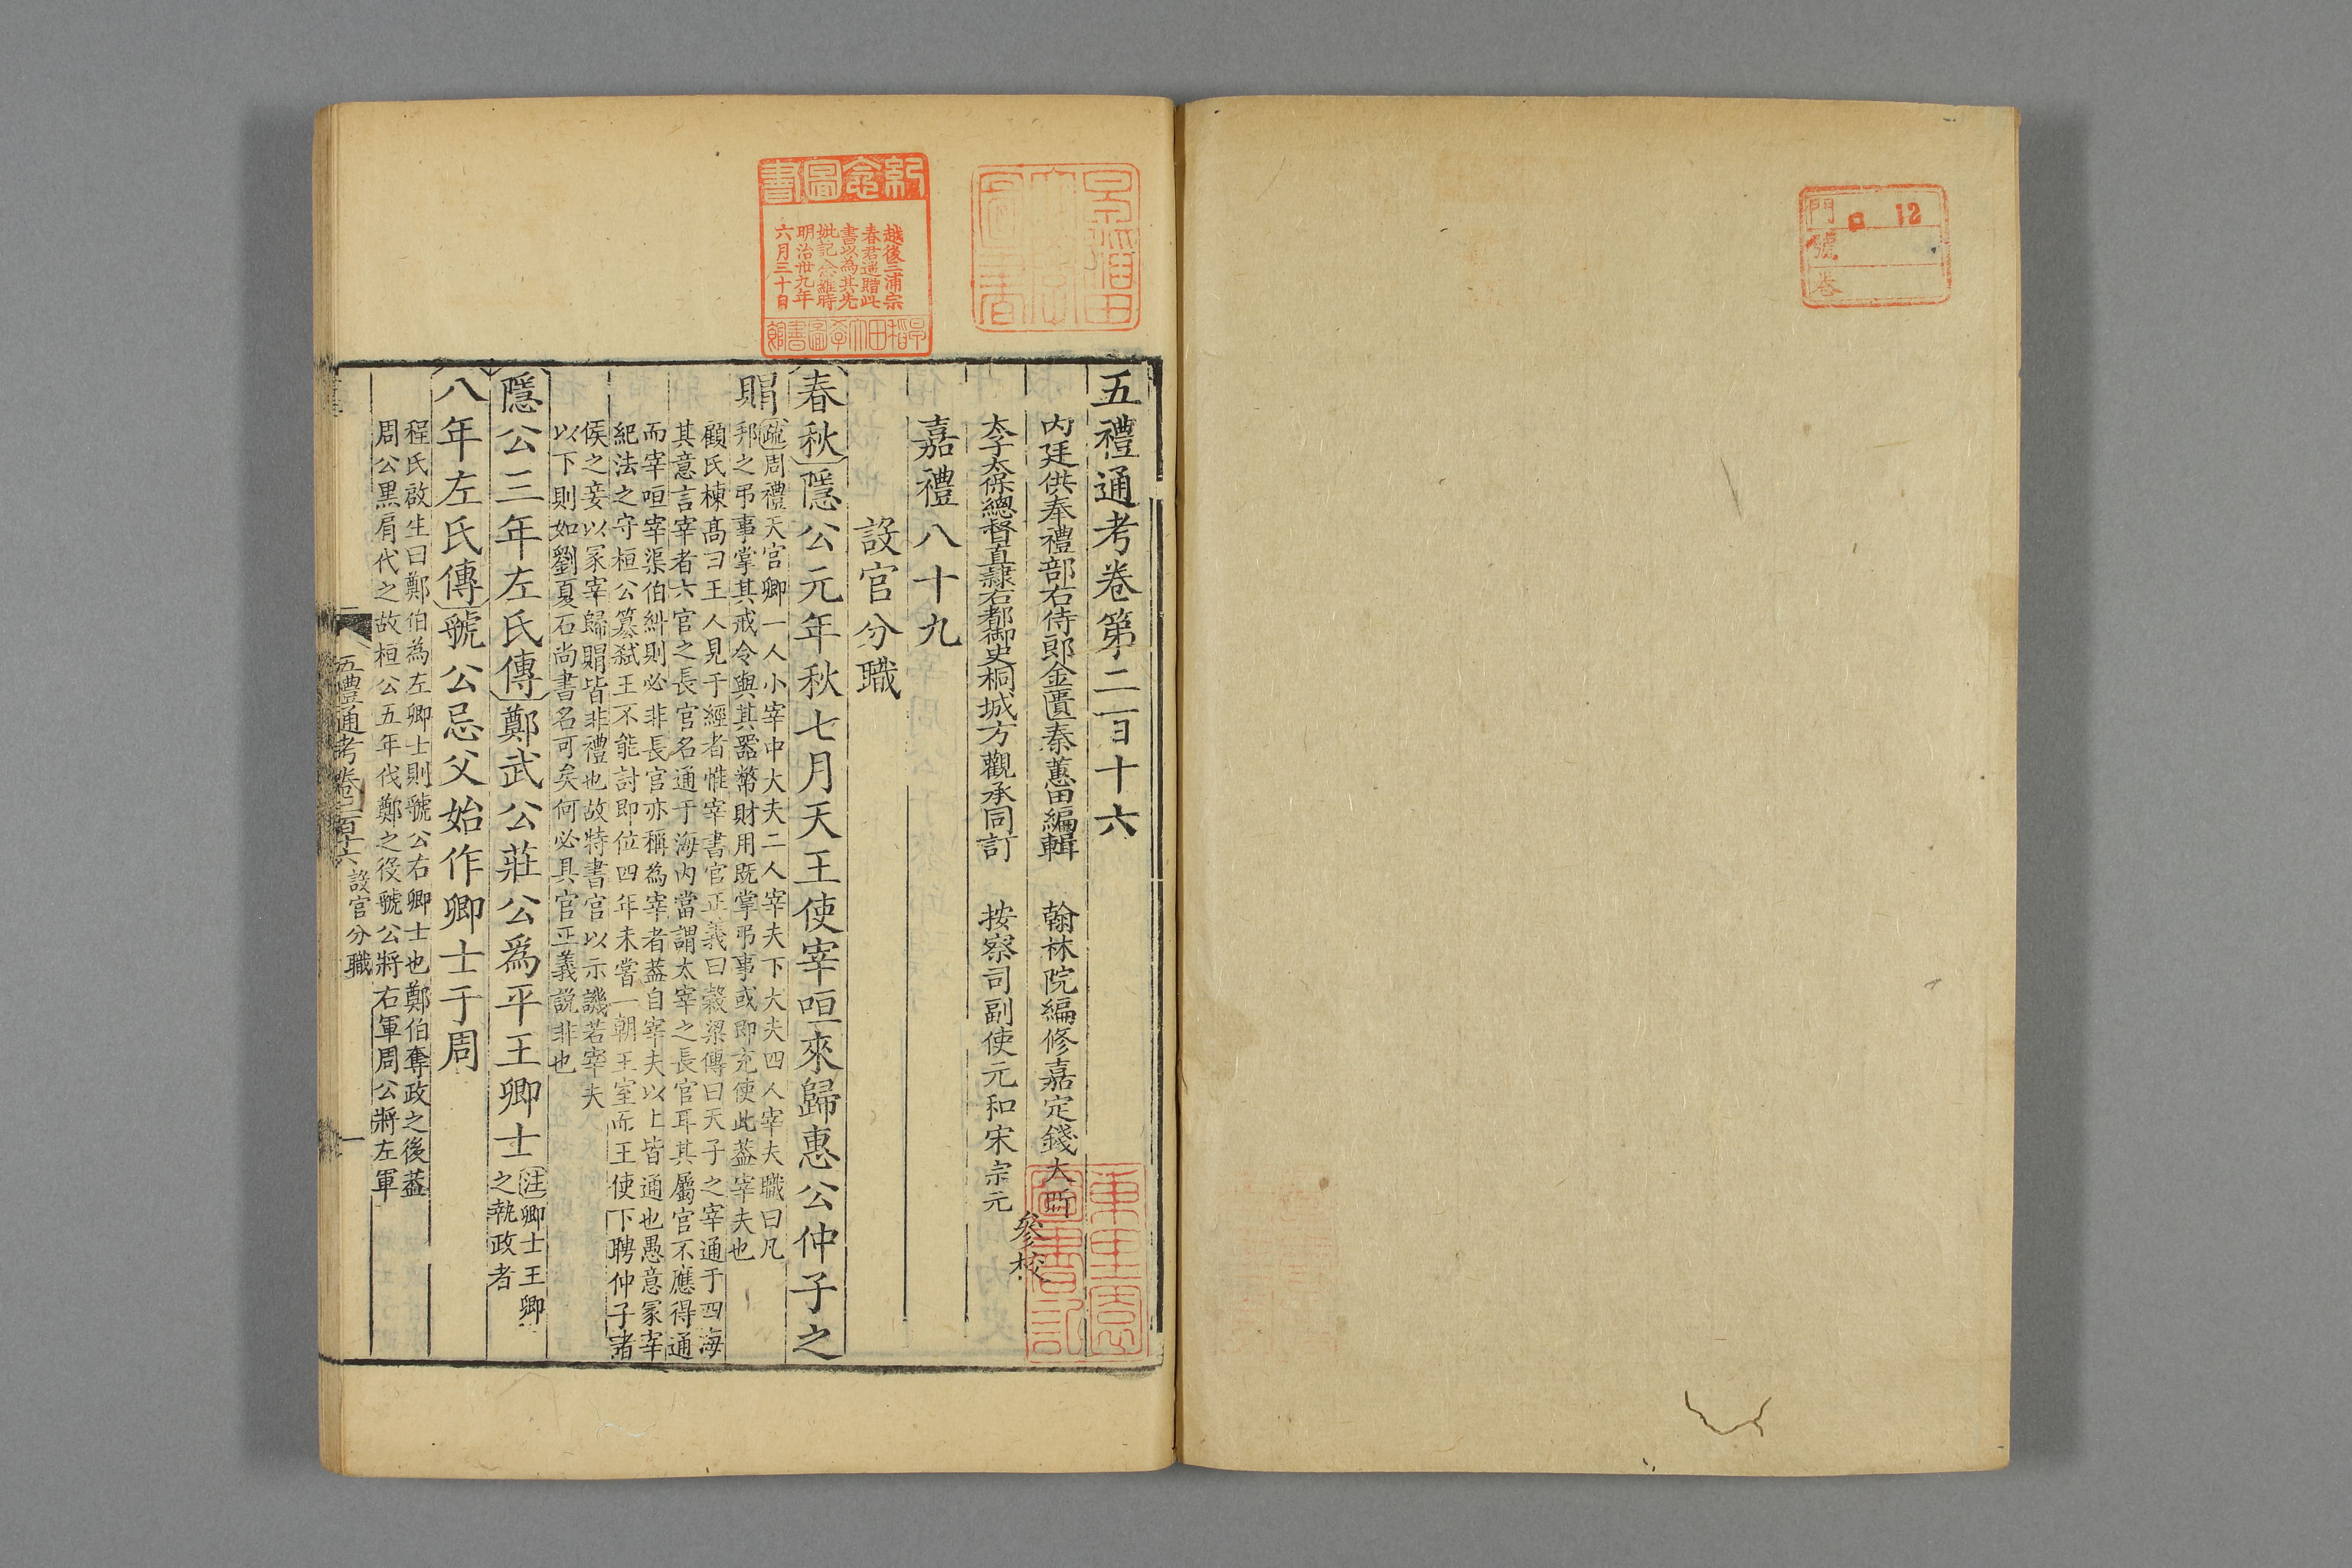 門 ロ 12
號
巻
紀念圖書
越後三浦宗
春君遙贈此
書以為其先
妣記念維時
明治卅九年
六月三十日
早稲田大學圖書館
五禮通考卷第二百十六
內廷供奉禮部右侍郎金匱秦蕙田編輯 翰林院編修嘉定錢大昕
太子太保總督直隸右都御史桐城方觀承同訂 按察司副使元和宋宗元
參校
嘉禮八十九
設官分職
春秋隱公元年秋七月天王使宰咺來歸惠公仲子之
賵
疏周禮天官卿一人小宰中大夫二人宰夫下大夫四人宰夫職曰凡
邦之弔事掌其戒令與其器幣財用既掌弔事或即充使此蓋宰夫也
顧氏棟高曰王人見于經者惟宰書官正義曰穀梁傳曰天子之宰通于四海
其意言宰者六官之長官名通于海內當謂太宰之長官耳其屬官不應得通
而宰咺宰渠伯糾則必非長官亦稱為宰者蓋自宰夫以上皆通也愚意冢宰
紀法之守桓公簒弒王不能討即位四年未嘗一朝王室而王使下聘仲子諸
侯之妾以冢宰歸賵皆非禮也故特書官以示譏若宰夫
以下則如劉夏石尚書名可矣何必具官正義説非也
隱公三年左氏傳鄭武公莊公爲平王卿士
注卿士王卿
之執政者
八年左氏傳虢公忌父始作卿士于周
程氏啟生曰鄭伯為左卿士則虢公右卿士也鄭伯奪政之後蓋
周公黑肩代之故桓公五年伐鄭之役虢公將右軍周公將左軍
五禮通考卷二百十六 設官分職 一